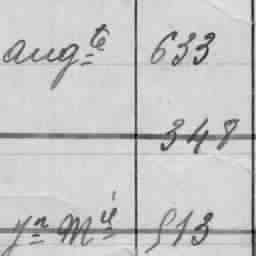 augte 633
348
jn Mie 513